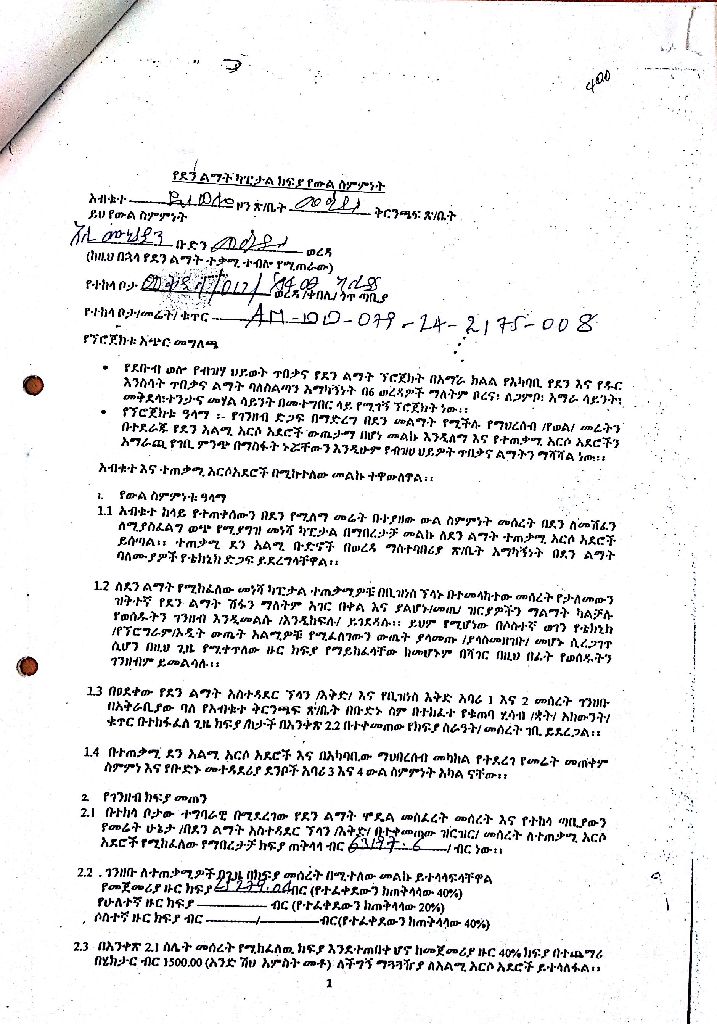 400
የደን ልማት ካፒታል ክፍያ የውል ስምምነት
አብቁተ ዞን ጽ/ቤት ቅርንጫፍ ጽ/ቤት
ይህ የውል ስምምነት
ቡድን ወረዳ
(ከዚህ በኋላ የደን ልማት ተቃሚ ተብሎ የሚጠራው)
የተከላ ቦታ ወረዳ /ቀበሌ/ ጎጥ ጣቢያ
የተከላ ቦታ/መሬት/ ቁጥር AM-DD-079-24-2175-008
የፕሮጀክቱ አጭር መግለጫ
• የደቡብ ወሎ የብዝሃ ህይወት ጥበቃና የደን ልማት ፕሮጀክት በአማራ ክልል የአካባቢ የደን እና የዱር
እንስሳት ጥበቃና ልማት ባለስልጣን አማካኝነት በ6 ወረዳዎች ማለትም ቦረና፣ ለጋምቦ፣ አማራ ሳይንት፣
መቅደላ፣ተንታና መሃል ሳይንት በመተግበር ላይ የሚገኝ ፕሮጀክት ነው።
• የፕሮጀክቱ ዓላማ ፡- የገንዘብ ድጋፍ በማድረግ በደን መልማት የሚችሉ የማህረሰብ /የወል/ መሬትን
በተደራጁ የደን አልሚ አርሶ አደሮች ውጤታማ በሆነ መልኩ እንዲለማ እና የተጠቃሚ አርሶ አደሮችን
አማራጪ የገቢ ምንጭ በማስፋት ኑሯቸውን እንዲሁም የብዝሀ ህይዎት ጥበቃና ልማትን ማሻሻል ነው።
አብቁተ እና ተጠቃሚ አርሶአደሮች በሚከተለው መልኩ ተዋውለዋል።
1. የውል ስምምነቱ ዓላማ
1.1 አብቁተ ከላይ የተጠቀሰውን በደን የሚለማ መሬት በተያዘው ውል ስምምነት መሰረት በደን ለመሸፈን
ለሚያስፈልግ ወጭ የሚያግዝ መነሻ ካፒታል በማበረታቻ መልኩ ለደን ልማት ተጠቃሚ አርሶ አደሮች
ይሰጣል። ተጠቃሚ ደን አልሚ ቡድኖች በወረዳ ማስተባበሪያ ጽ/ቤት አማካኝነት በደን ልማት
ባለሙያዎች የቴክኒክ ድጋፍ ይደረግላቸዋል።
1.2 ለደን ልማት የሚከፈለው መነሻ ካፒታል ተጠቃሚዎቹ በቢዝነስ ፕላኑ በተመላከተው መሰረት የታለመውን
ዝቅተኛ የደን ልማት ሽፋን ማለትም አገር በቀል እና ያልሆኑ/መጤ/ ዝርያዎችን ማልማት ካልቻሉ
የወሰዱትን ገንዘብ እንዲመልሱ /እንዲከፍሉ/ ይገደዳሉ። ይህም የሚሆነው በሶስተኛ ወገን የቴክኒክ
/የፕሮግራም/ኦዲት ውጤት አልሚዎቹ የሚፈለገውን ውጤት ያላመጡ /ያላስመዘገቡ/ መሆኑ ሲረጋገጥ
ሲሆን በዚህ ጊዜ የሚቀጥለው ዙር ክፍያ የማይከፈላቸው ከመሆኑም በሻገር በዚህ በፊት የወሰዱትን
ገንዘብም ይመልሳሉ።
1.3 በፀደቀው የደን ልማት አስተዳደር ፕላን /እቅድ/ እና የቢዝነስ እቅድ አባሪ 1 እና 2 መሰረት ገንዘቡ
በአቅራቢያው ባለ የአብቁተ ቅርንጫፍ ጽ/ቤት በቡድኑ ስም በተከፈተ የቁጠባ ሂሳብ /ቋት/ አካውንት/
ቁጥር በተከፋፈለ ጊዜ ክፍያ /ከታች በአንቀጽ 2.2 በተቀመጠው የክፍያ ስራዓት/ መሰረት ገቢ ይደረጋል።
1.4 በተጠቃሚ ደን አልሚ አርሶ አደሮች እና በአካባቢው ማህበረሰብ መካከል የተደረገ የመሬት መጠቀም
ስምምነ እና የቡድኑ መተዳደሪያ ደንቦች አባሪ 3 እና 4 ውል ስምምነት አካል ናቸው።
2. የገንዘብ ክፍያ መጠን
2.1 በተከላ ቦታው ተግባራዊ በሚደረገው የደን ልማት ሞዴል መስፈረት መሰረት እና የተከላ ጣቢያውን
የመሬት ሁኔታ /በደን ልማት አስተዳደር ፕላን /እቅድ/ በተቀመጠው ዝርዝር/ መሰረት ለተጠቃሚ አርሶ
አደሮች የሚከፈለው የማበረታቻ ክፍያ ጠቅላላ ብር / ብር ነው።
2.2 . ገንዘቡ ለተጠቃሚዎች በጊዜ በክፍያ መሰረት በሚተለው መልኩ ይተላላፍላቸዋል
የመጀመሪያ ዙር ክፍያ ብር (የተፈቀደውን ከጠቅላላው 40%)
የሁለተኛ ዙር ክፍያ ብር (የተፈቀደውን ከጠቅላላው 20%)
ሶስተኛ ዙር ክፍያ ብር / ብር(የተፈቀደውን ከጠቅላላው 40%)
2.3 በአንቀጽ 2.1 ስሌት መሰረት የሚከፈለዉ ክፍያ እንደተጠበቀ ሆኖ ከመጀመሪያ ዙር 40% ክፍያ በተጨማሪ
በሄክታር ብር 1500.00 (አንድ ሽህ አምስት መቶ) ለችግኝ ማጓጓዣ ለአልሚ አርሶ አደሮች ይተላለፋል።
1